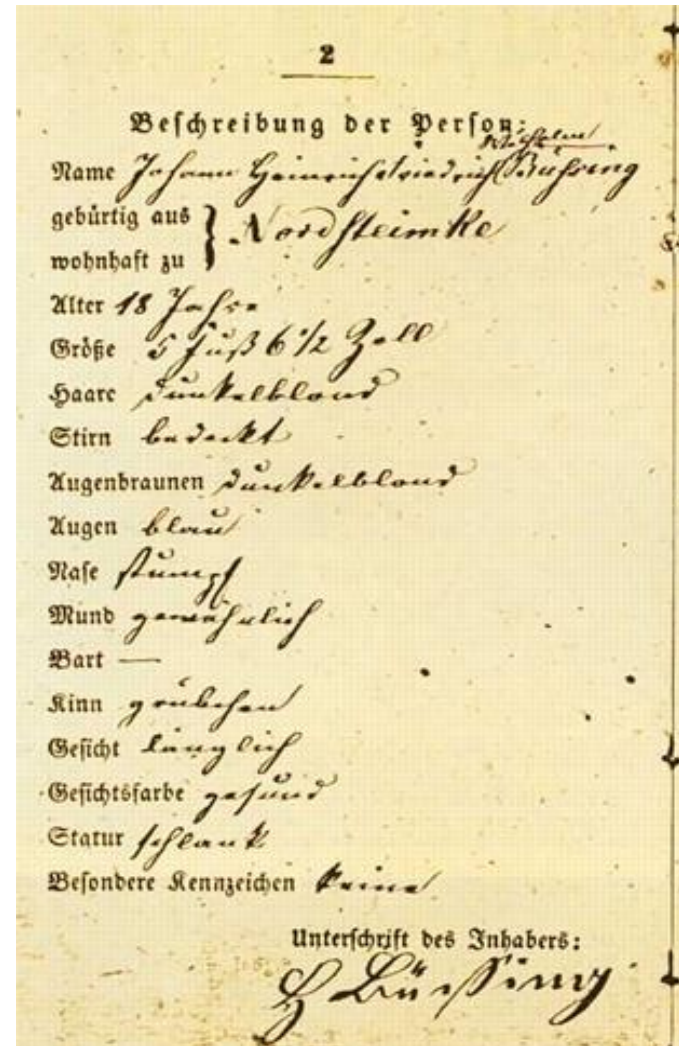 2
Beschreibung der Person:
Wilhelm
Name Johann Heinrich Friedrich Büßing
gebürtig aus
wohnhaft zu } Nordsteimke
Alter 18 Jahre
Größe 5 Fuß 6 1/2 Zoll
Haare dunkelblond
Stirn bedeckt
Augenbraunen dunkelblond
Augen blau
Nase stumpf
Mund gewöhnlich
Bart —
Kinn grübchen
Gesicht länglich
Gesichtsfarbe gesund
Statur schlank
Besondere Kennzeichen keine
Unterschrift des Inhabers:
H Büssing